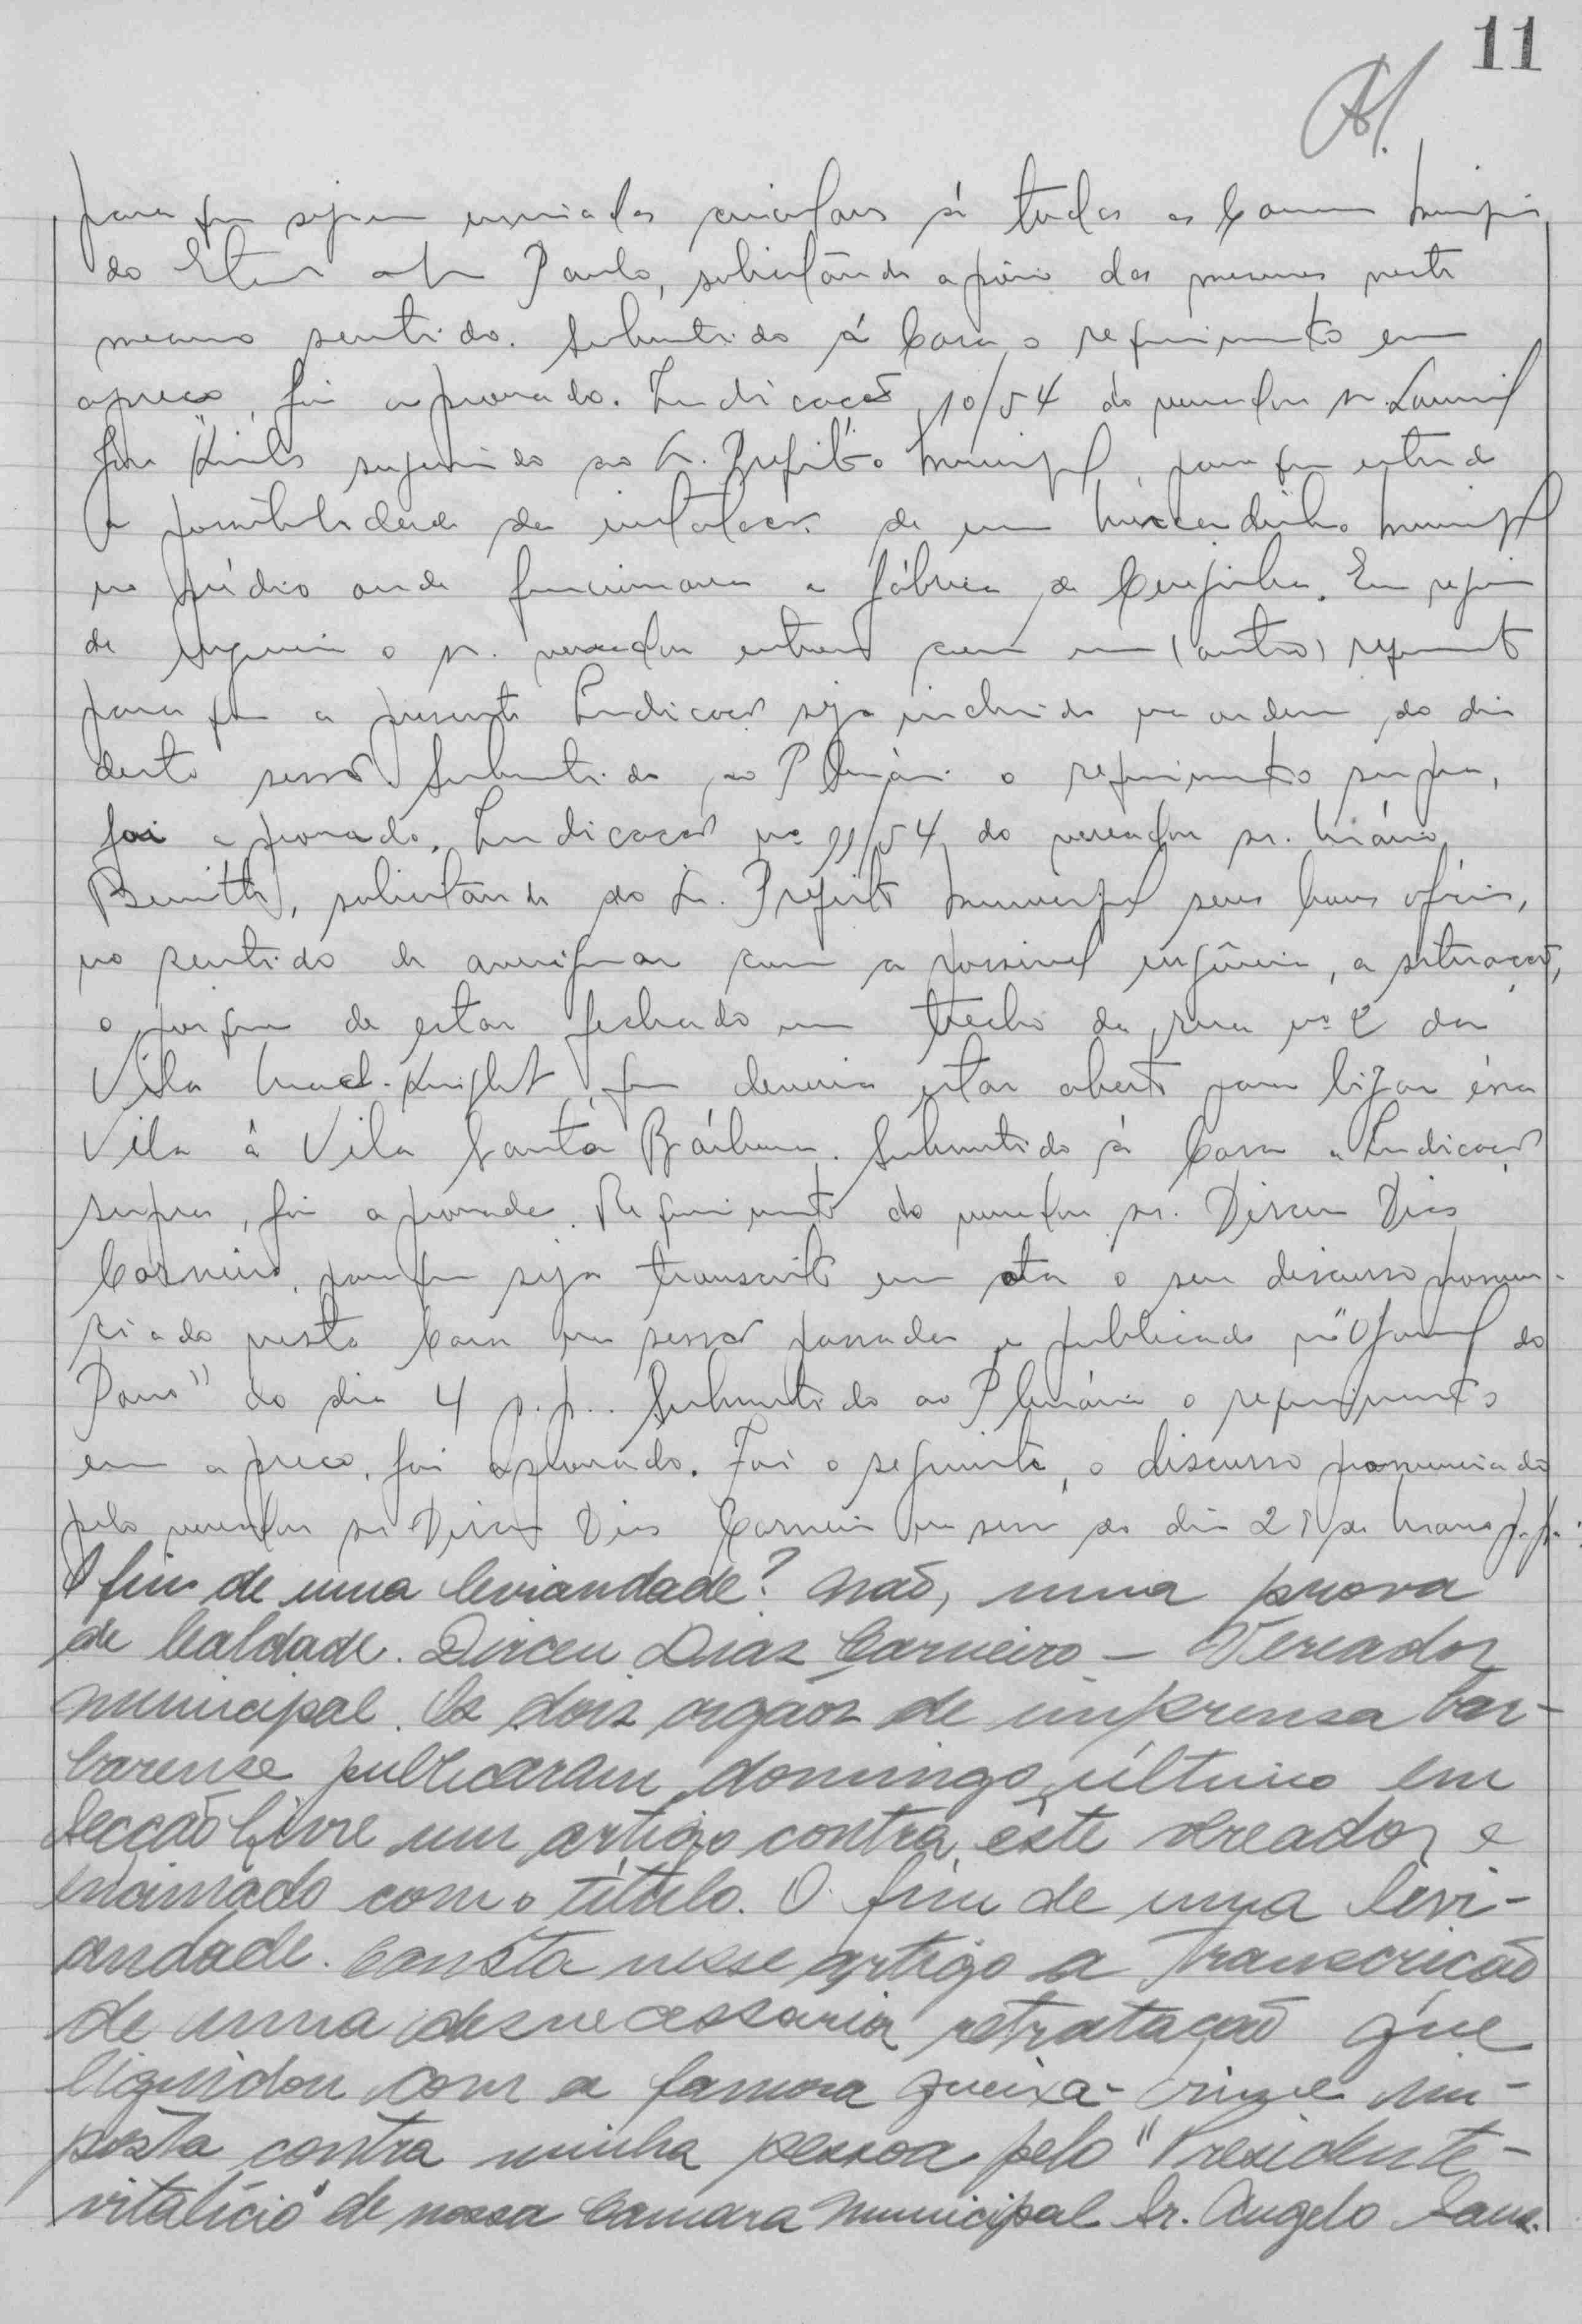 11
para que sejam enviadas circulares á todas as Camaras Municipais
do Estado de São Paulo, solicitando apôio das mesmas neste
mesmo sentido. Submetido á Casa o requerimento em
apreço, foi aprovado. Indicação 10/54 do vereador sr.
sugerindo ao Sr. Prefeito Municipal, para que estude
a possibilidade da instalação de um mercadinho municipal
no prédio onde funcionava a fábrica de Cerejinha. Em
de o sr. vereador entrou com um (outro) requerimento
para que a presente Indicação seja incluida na ordem do dia
desta sessão. Submetido ao Plenário o requerimento supra,
foi aprovado. Indicação nº 11/54 do vereador sr. Mário
solicitando do Sr. Prefeito Municipal seus bons ofícios,
no sentido de averiguar com a possivel urgência, a situação,
o porque de estar fechado um trecho da rua nº 2 da
Vila Mac-Knight, que deveria estar aberto para ligar éssa
Vila á Vila Santa Bárbara. Submetido á Casa a Indicação
supra, foi aprovada. Requerimento do vereador sr. Dirceu Dias
Carneiro, para que seja transcrito em ata o seu discurso pronun-
ciado nesta Casa na sessão passada e publicado no "O Jornal do
Povo" do dia 4 p.p.. Submetido ao Plenário o requerimento
em apreço, foi aprovado. Foi o seguinte, o discurso pronunciado
pelo vereador sr. Dirceu Dias Carneiro na sessão do dia de março p.p.:
O fim de uma leviandade? Não, uma prova
de lealdade. Dirceu Dias Carneiro — Vereador
municipal. Os dois orgãos de imprensa bar-
barense publicaram domingo último em
Secção Livre um artigo contra êste vereador e
encimado com o título. O fim de uma levi-
andade. Consta nesse artigo a transcrição
de uma desnecessaria retratação que
liquidou com a famosa queixa-crime im-
posta contra minha pessoa pelo "Presidente-
vitalício" de nossa Camara Municipal Sr. Angelo Sans.